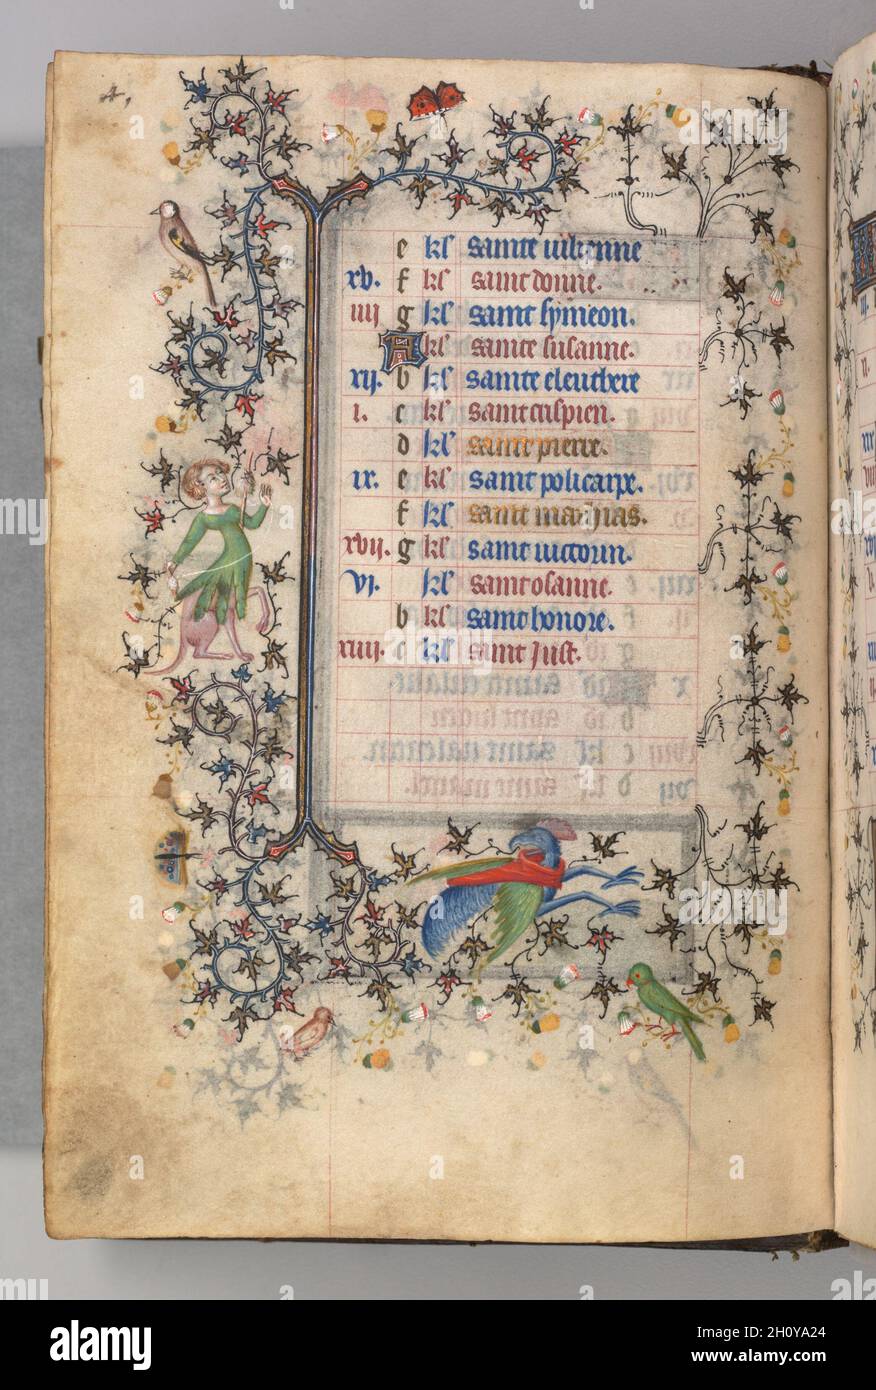 4,
e kl' sainte iulienne
xv. f kl' saint donne.
iiii g kl' saint symeon.
A kl' sainte susanne.
xii. b kl' sainte eleuthere
i. c kl' saint cispien.
d kl' saint pierre.
ix. e kl' saint policarpe.
f kl' saint mathias.
xvii. g kl' saint victorin.
vi. kl' saint osanne.
b kl' saint honore.
xiiii. c kl' saint Just.
alamy
Image ID: 2H0YA24
www.alamy.com